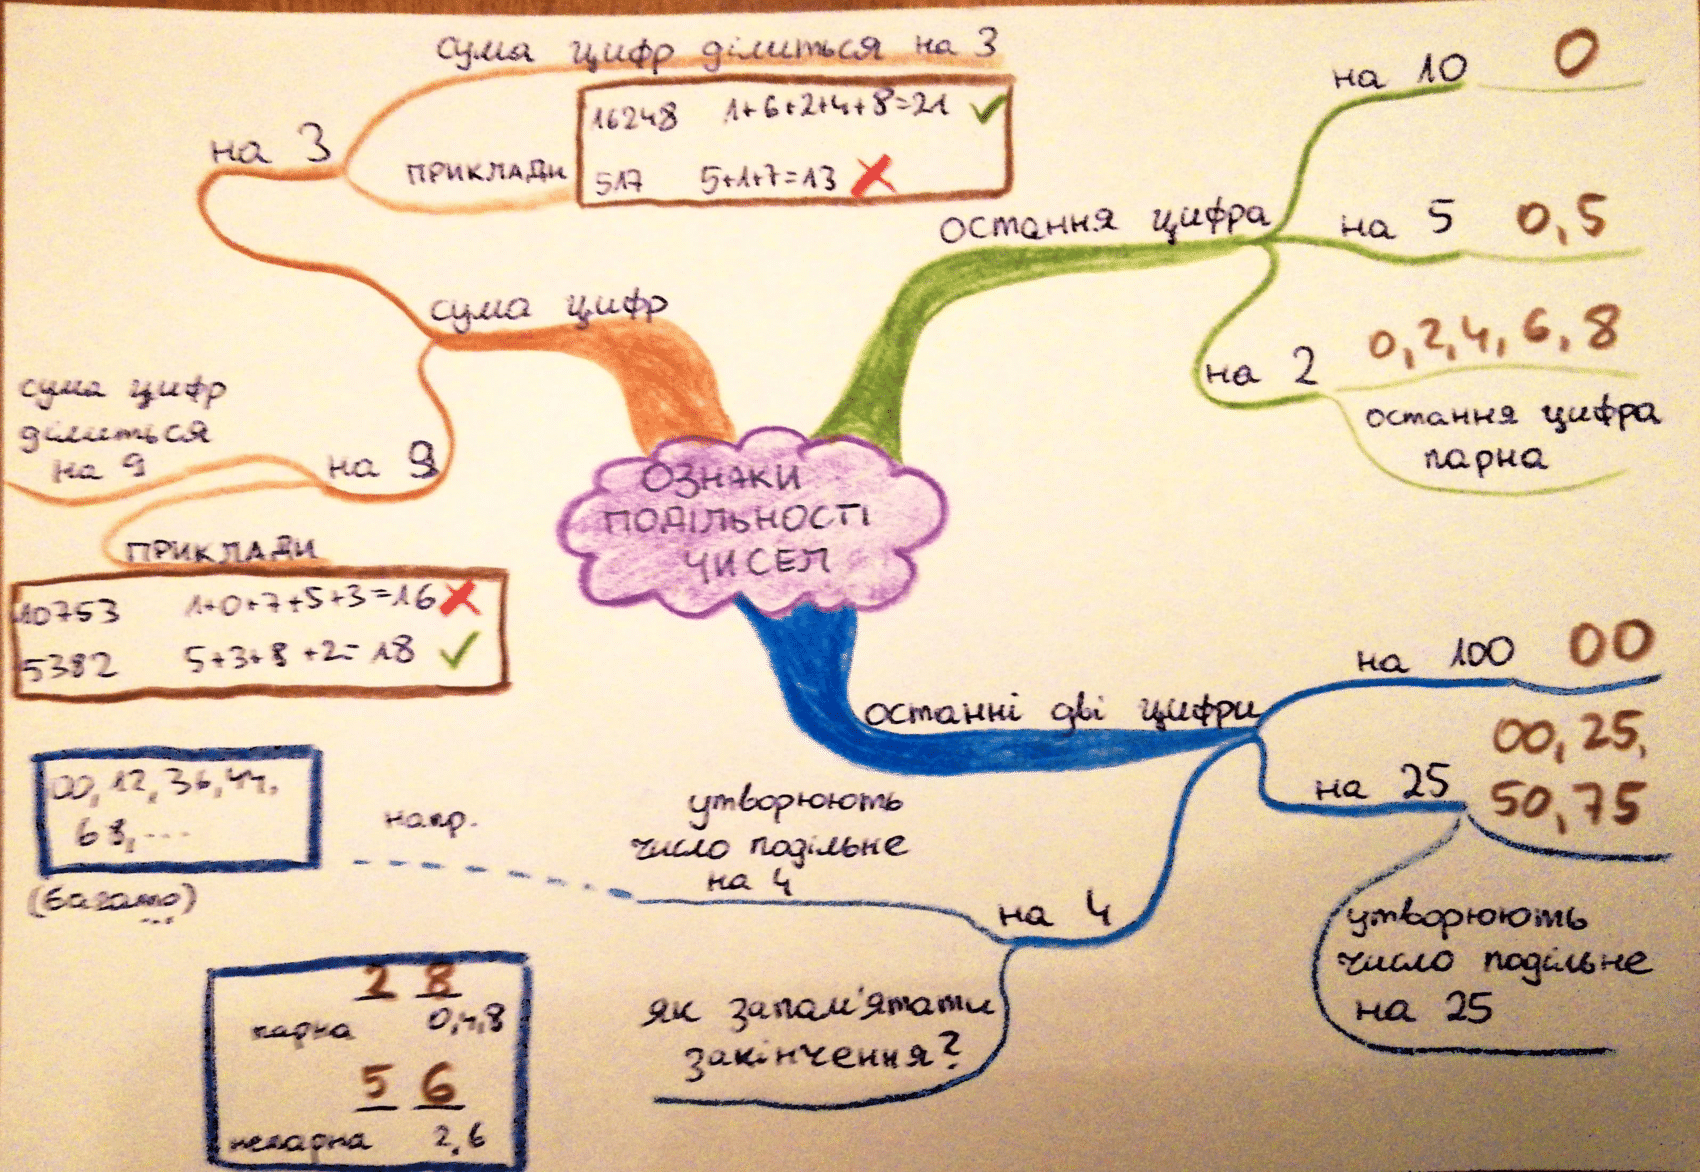 ОЗНАКИ
ПОДІЛЬНОСТІ
ЧИСЕЛ
сума цифр
на 3
сума цифр ділиться на 3
приклади
16248 1+6+2+4+8=21 ✓
517 5+1+7=13 ✗
на 9
сума цифр
ділиться
на 9
приклади
10753 1+0+7+5+3=16 ✗
5382 5+3+8+2=18 ✓
остання цифра
на 10 0
на 5 0, 5
на 2 0, 2, 4, 6, 8
остання цифра
парна
останні дві цифри
на 100 00
на 25 00, 25,
50, 75
утворюють
число подільне
на 25
на 4
утворюють
число подільне
на 4
напр.
00, 12, 36, 44,
68, ...
(багато)
...
як запам'ятати
закінчення?
2 8
парна 0,4,8
5 6
непарна 2,6